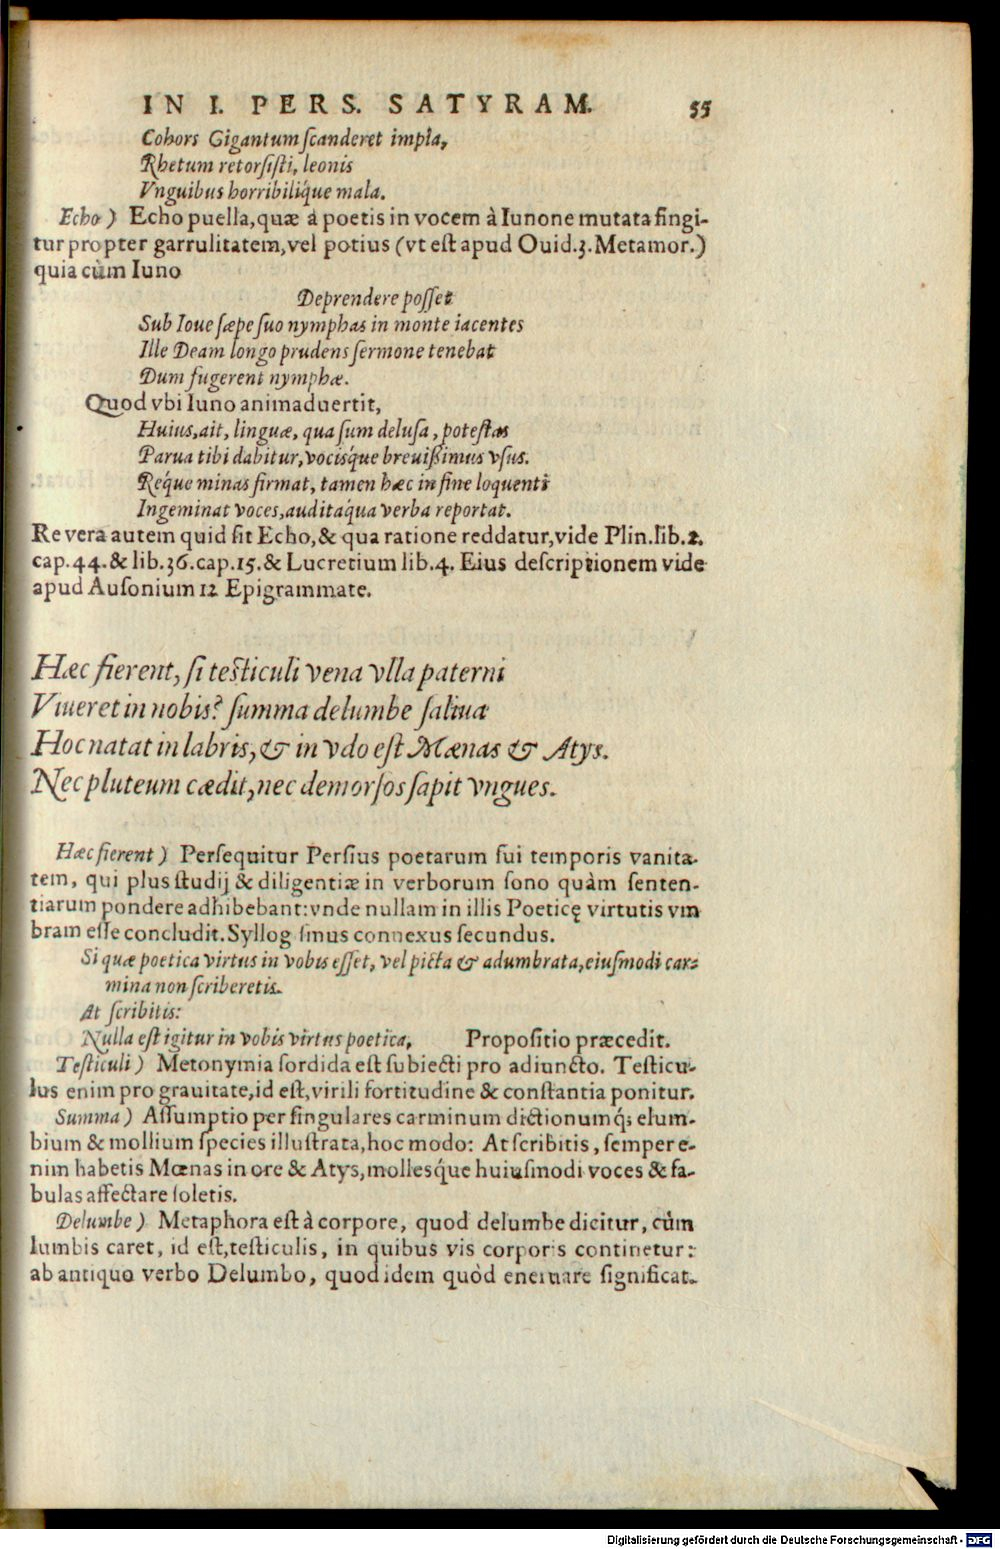 IN I. PERS. SATYRAM. 55
Cohors Gigantum ſcanderet impia,
Rhetum retorſiſti, leonis
Vnguibus horribiliq́ue mala.
Echo) Echo puella, quæ à poetis in vocem à Iunone mutata fingi-
tur propter garrulitatem, vel potius (vt eſt apud Ouid. 3. Metamor.)
quia cùm Iuno
Deprendere poſſet
Sub Ioue ſæpe ſuo nymphas in monte iacentes
Ille Deam longo prudens ſermone tenebat
Dum fugerent nymphæ.
Quod vbi Iuno animaduertit,
Huius, ait, linguæ, qua ſum deluſa, poteſtas
Parua tibi dabitur, vociſq́ue breuißimus vſus.
Req́ue minas firmat, tamen hæc in fine loquenti
Ingeminat voces, auditaq́ua verba reportat.
Re vera autem quid ſit Echo, & qua ratione reddatur, vide Plin. lib. 2.
cap. 44. & lib. 36. cap. 15. & Lucretium lib. 4. Eius deſcriptionem vide
apud Auſonium 12 Epigrammate.
Hæc fierent, ſi teſticuli vena vlla paterni
Viueret in nobis? ſumma delumbe ſaliua
Hoc natat in labris, & in vdo eſt Mænas & Atys.
Nec pluteum cædit, nec demorſos ſapit vngues.
Hæc fierent) Perſequitur Perſius poetarum ſui temporis vanita-
tem, qui plus ſtudij & diligentiæ in verborum ſono quàm ſenten-
tiarum pondere adhibebant: vnde nullam in illis Poeticę virtutis vm
bram eſſe concludit. Syllog ſmus connexus ſecundus.
Si quæ poetica virtus in vobis eſſet, vel picta & adumbrata, eiuſmodi car-
mina non ſcriberetis.
At ſcribitis:
Nulla eſt igitur in vobis virtus poetica, Propoſitio præcedit.
Teſticuli) Metonymia ſordida eſt ſubiecti pro adiuncto. Teſticu-
lus enim pro grauitate, id eſt, virili fortitudine & conſtantia ponitur.
Summa) Aſſumptio per ſingulares carminum dictionumq́; elum-
bium & mollium ſpecies illuſtrata, hoc modo: At ſcribitis, ſemper e-
nim habetis Mœnas in ore & Atys, molleſq́ue huiuſmodi voces & fa-
bulas affectare ſoletis.
Delumbe) Metaphora eſt à corpore, quod delumbe dicitur, cùm
lumbis caret, id eſt, teſticulis, in quibus vis corporis continetur:
ab antiquo verbo Delumbo, quod idem quòd eneruare ſignificat.
Digitalisierung gefördert durch die Deutsche Forschungsgemeinschaft - DFG